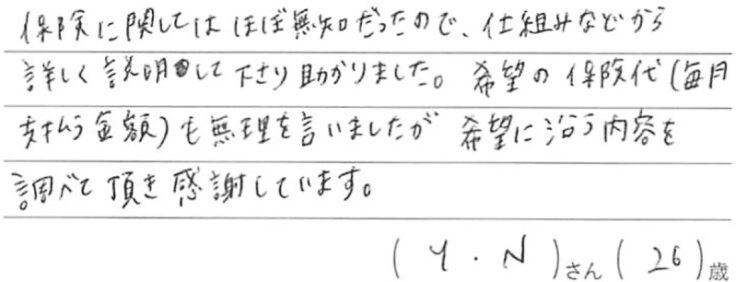 保険に関してはほぼ無知だったので、仕組みなどから
詳しく説明して下さり助かりました。希望の保険代(毎月
支払う金額)も無理を言いましたが希望に沿う内容を
調べて頂き感謝しています。
(Y.N)さん(26)歳